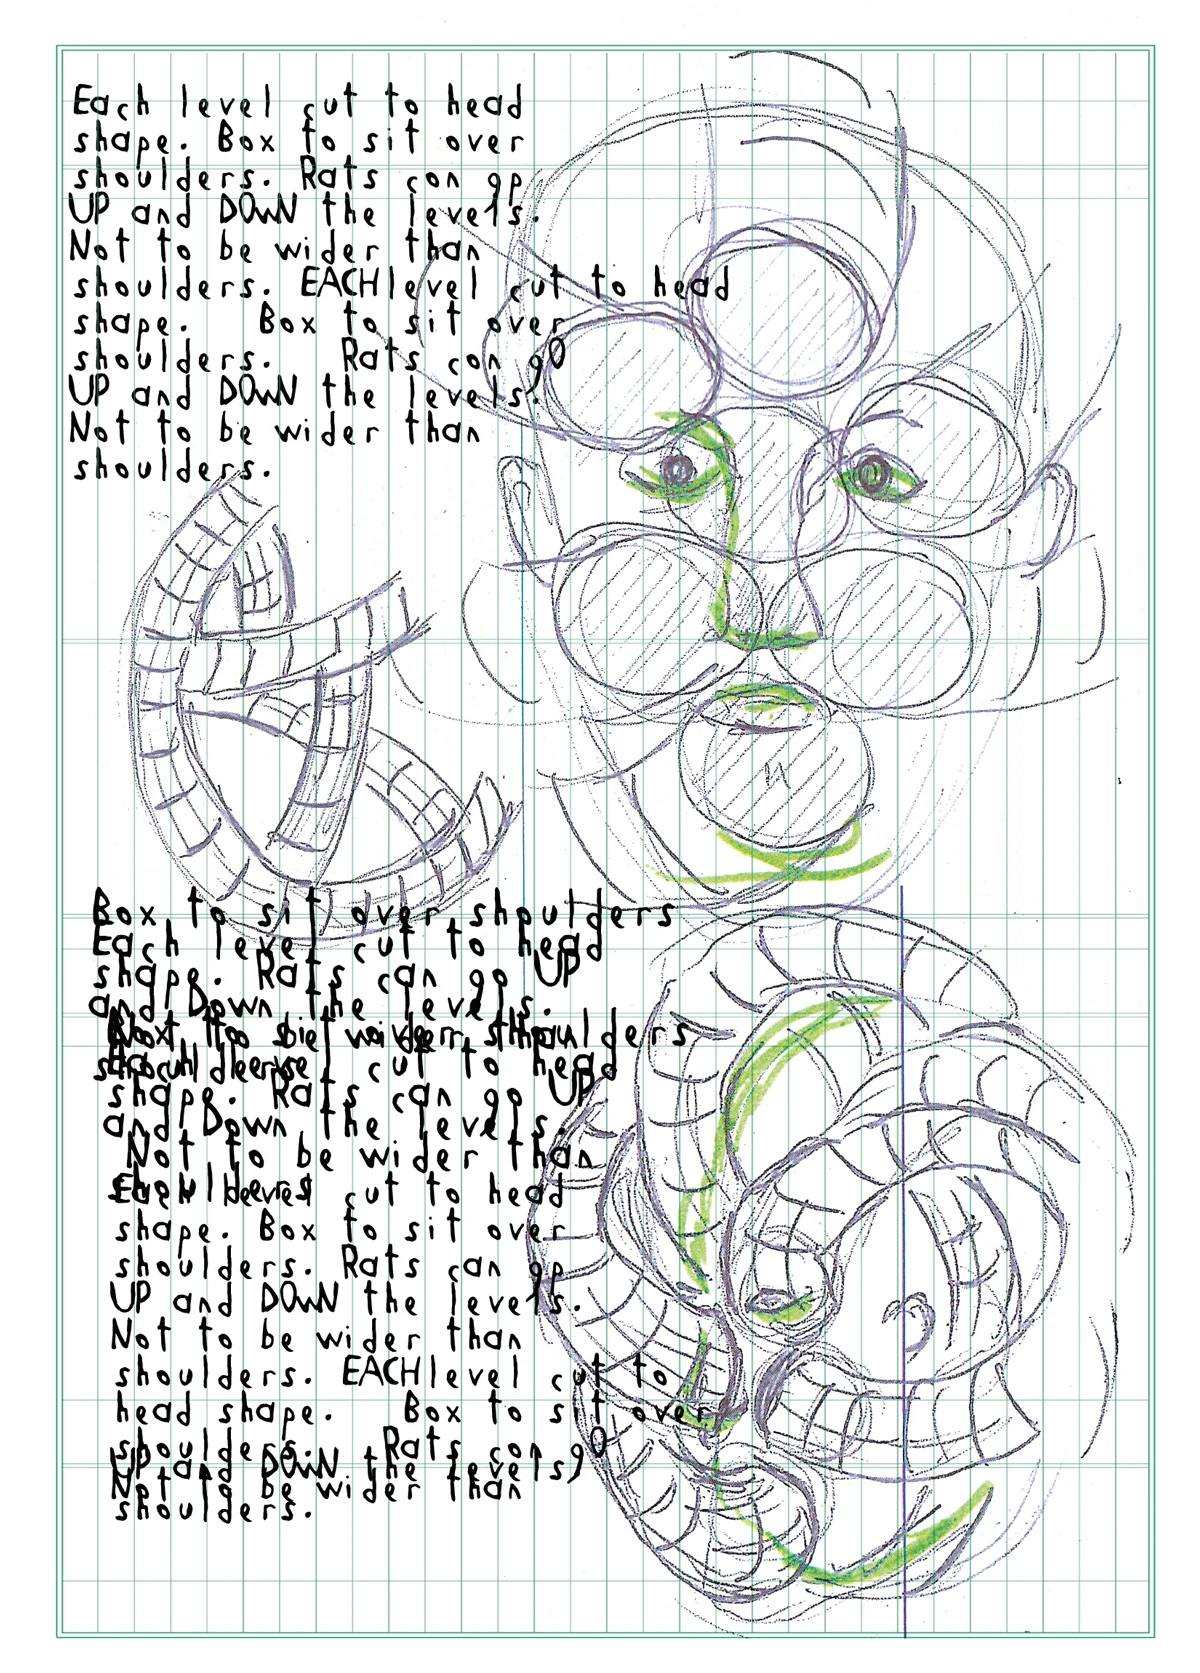 Each level cut to head
shape. Box to sit over
shoulders. Rats con gp
UP and DOWN the levels.
Not to be wider than
shoulders. EACH level cut to head
shape. Box to sit over
shoulders. Rats con gO
UP and DOWN the levels.
Not to be wider than
shoulders.
Box to sit over shoulders
Each level cut to head
shape. Rats can go UP
and Down the levels.
cut to head
shape. Rats can go UP
and Down the levels.
Not to be wider than
cut to head
shape. Box to sit over
shoulders. Rats can gp
UP and DOWN the levels.
Not to be wider than
shoulders. EACH level cut to
head shape. Box to sit over
shoulders. Rats con gO
UP and DOWN the levels
Not to be wider than
shoulders.